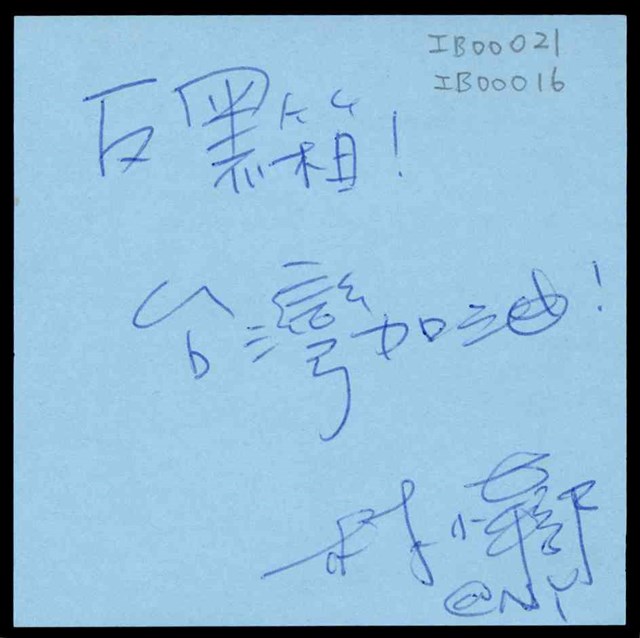 IB00021
IB00016
反黑箱！
台灣加油！
@NY